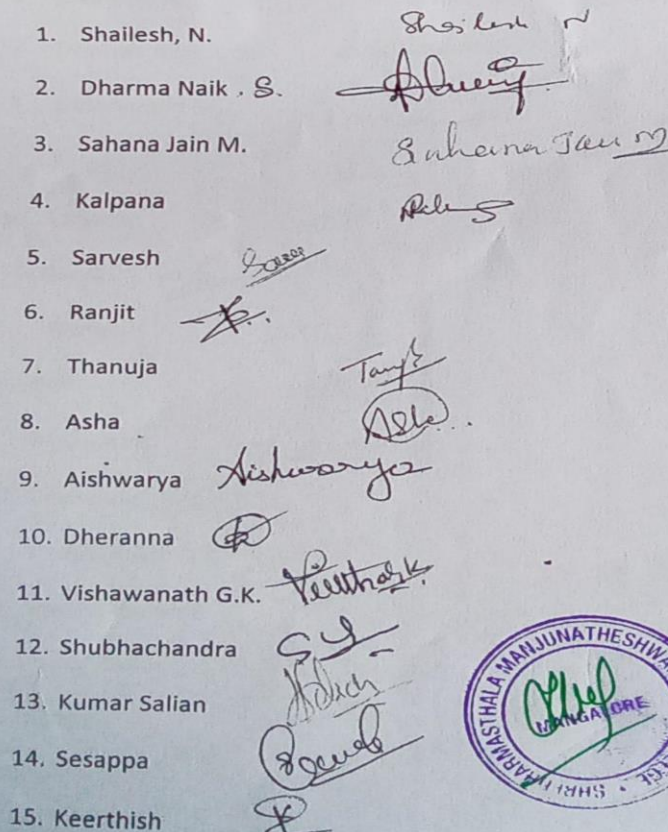 1. Shailesh, N. Shailesh N
2. Dharma Naik . S.
3. Sahana Jain M. Sahana Jain M
4. Kalpana
5. Sarvesh
6. Ranjit
7. Thanuja
8. Asha Asha
9. Aishwarya Aishwarya
10. Dheranna
11. Vishawanath G.K.
12. Shubhachandra
13. Kumar Salian
14. Sesappa
15. Keerthish
SHRI DHARMASTHALA MANJUNATHESHWA
MANGALORE